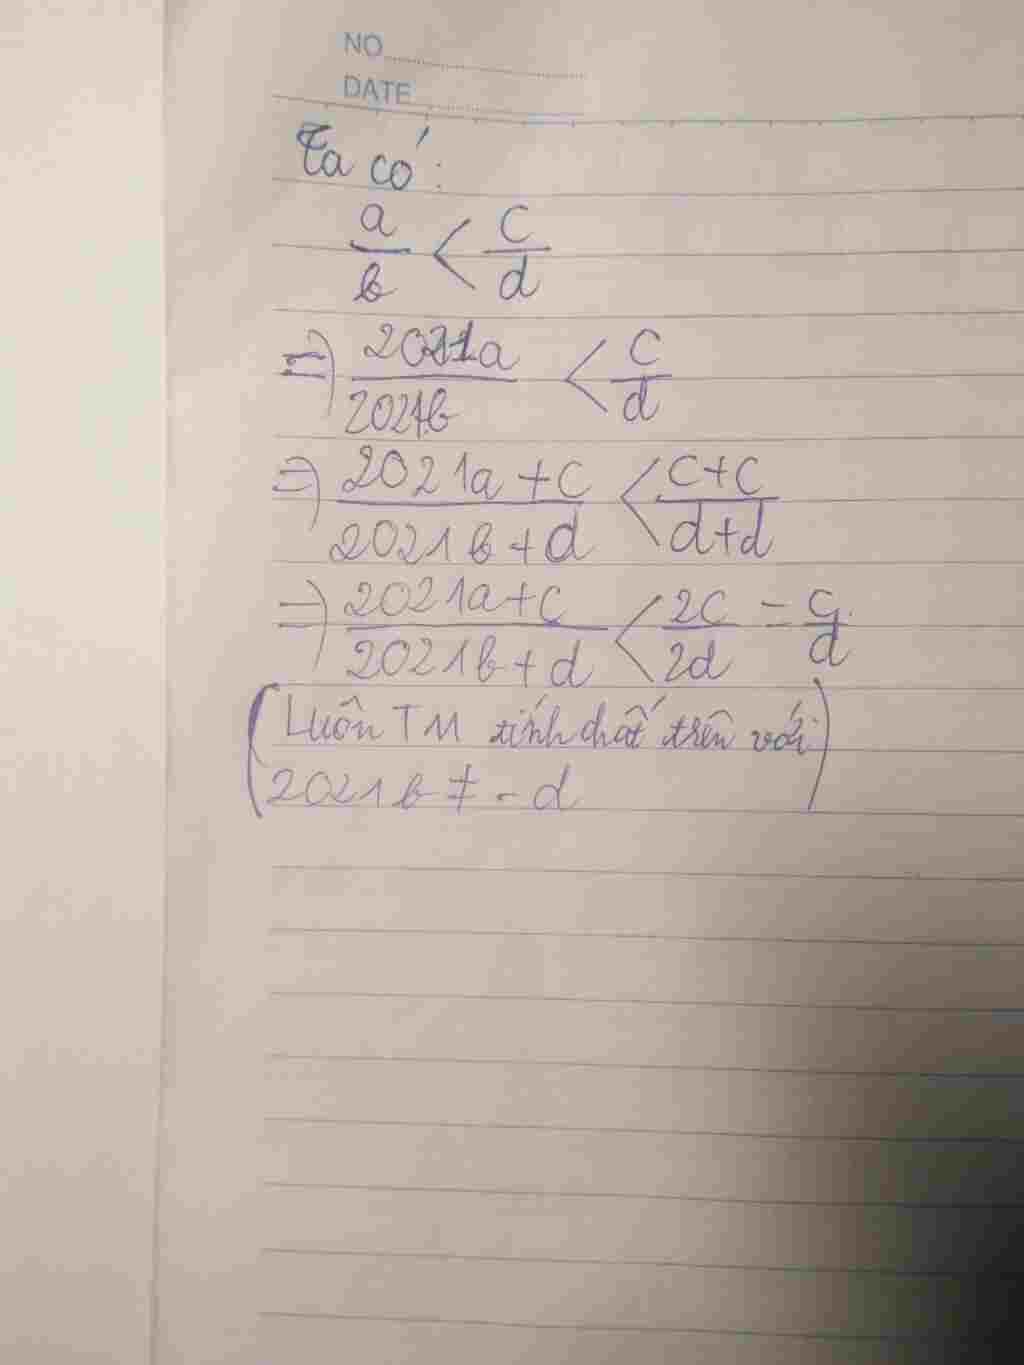 NO
DATE
Ta có:
a/b < c/d
=) 2021a/2021b < c/d
=) 2021a+c/2021b+d < c+c/d+d
=) 2021a+c/2021b+d < 2c/2d = c/d
(Luôn TM tính chất trên với
2021b ≠ -d)